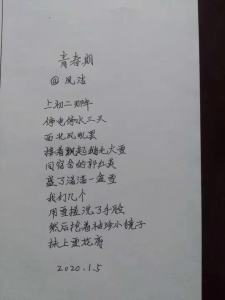 青春期
@风洁
上初二那年
停电停水三天
西北风呼呼
接着飘起鹅毛大雪
同宿舍的郭红英
盛了满满一盆雪
我们几个
用雪搓洗了手脸
然后挖着袖珍小镜子
抹上雪花膏
2020.1.5